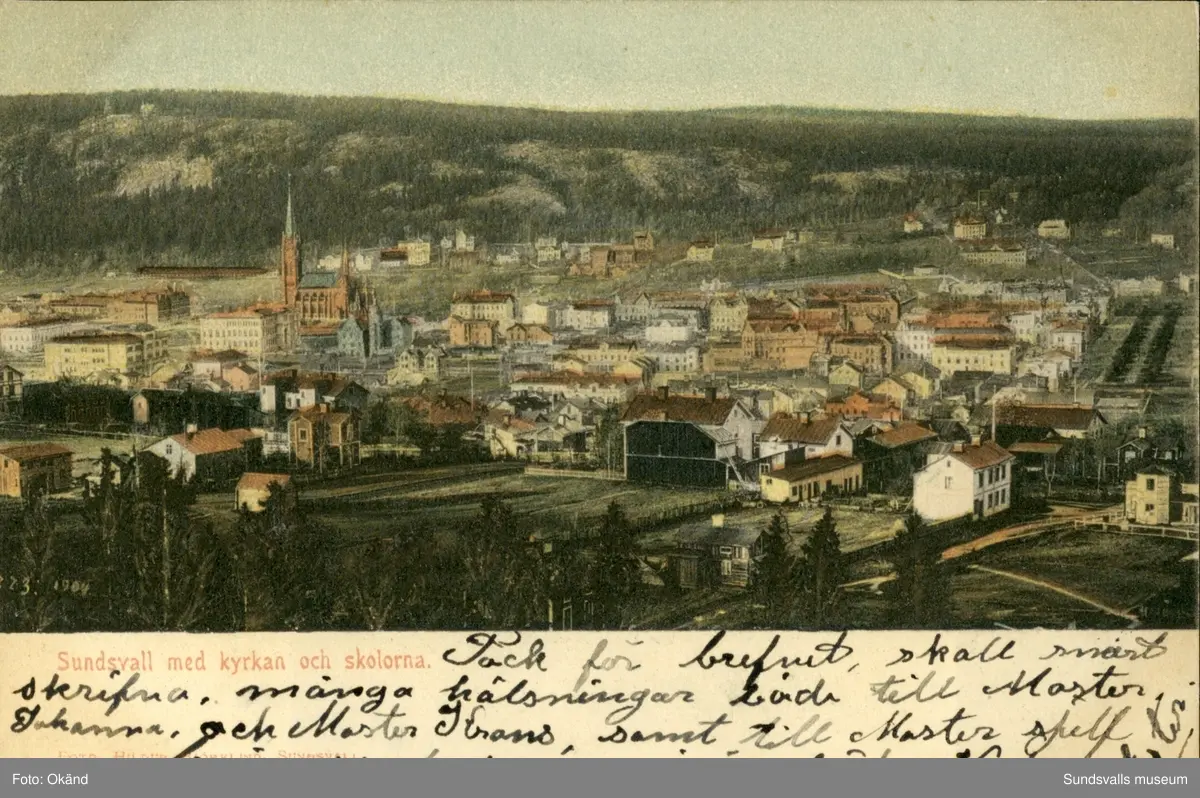 223. 1904
Sundsvall med kyrkan och skolorna.
Tack för brefvet, skall snart
skrifva, många hälsningar både till Moster
Johanna, och Moster Frans, samt till Moster
Foto: Okänd
Sundsvalls museum